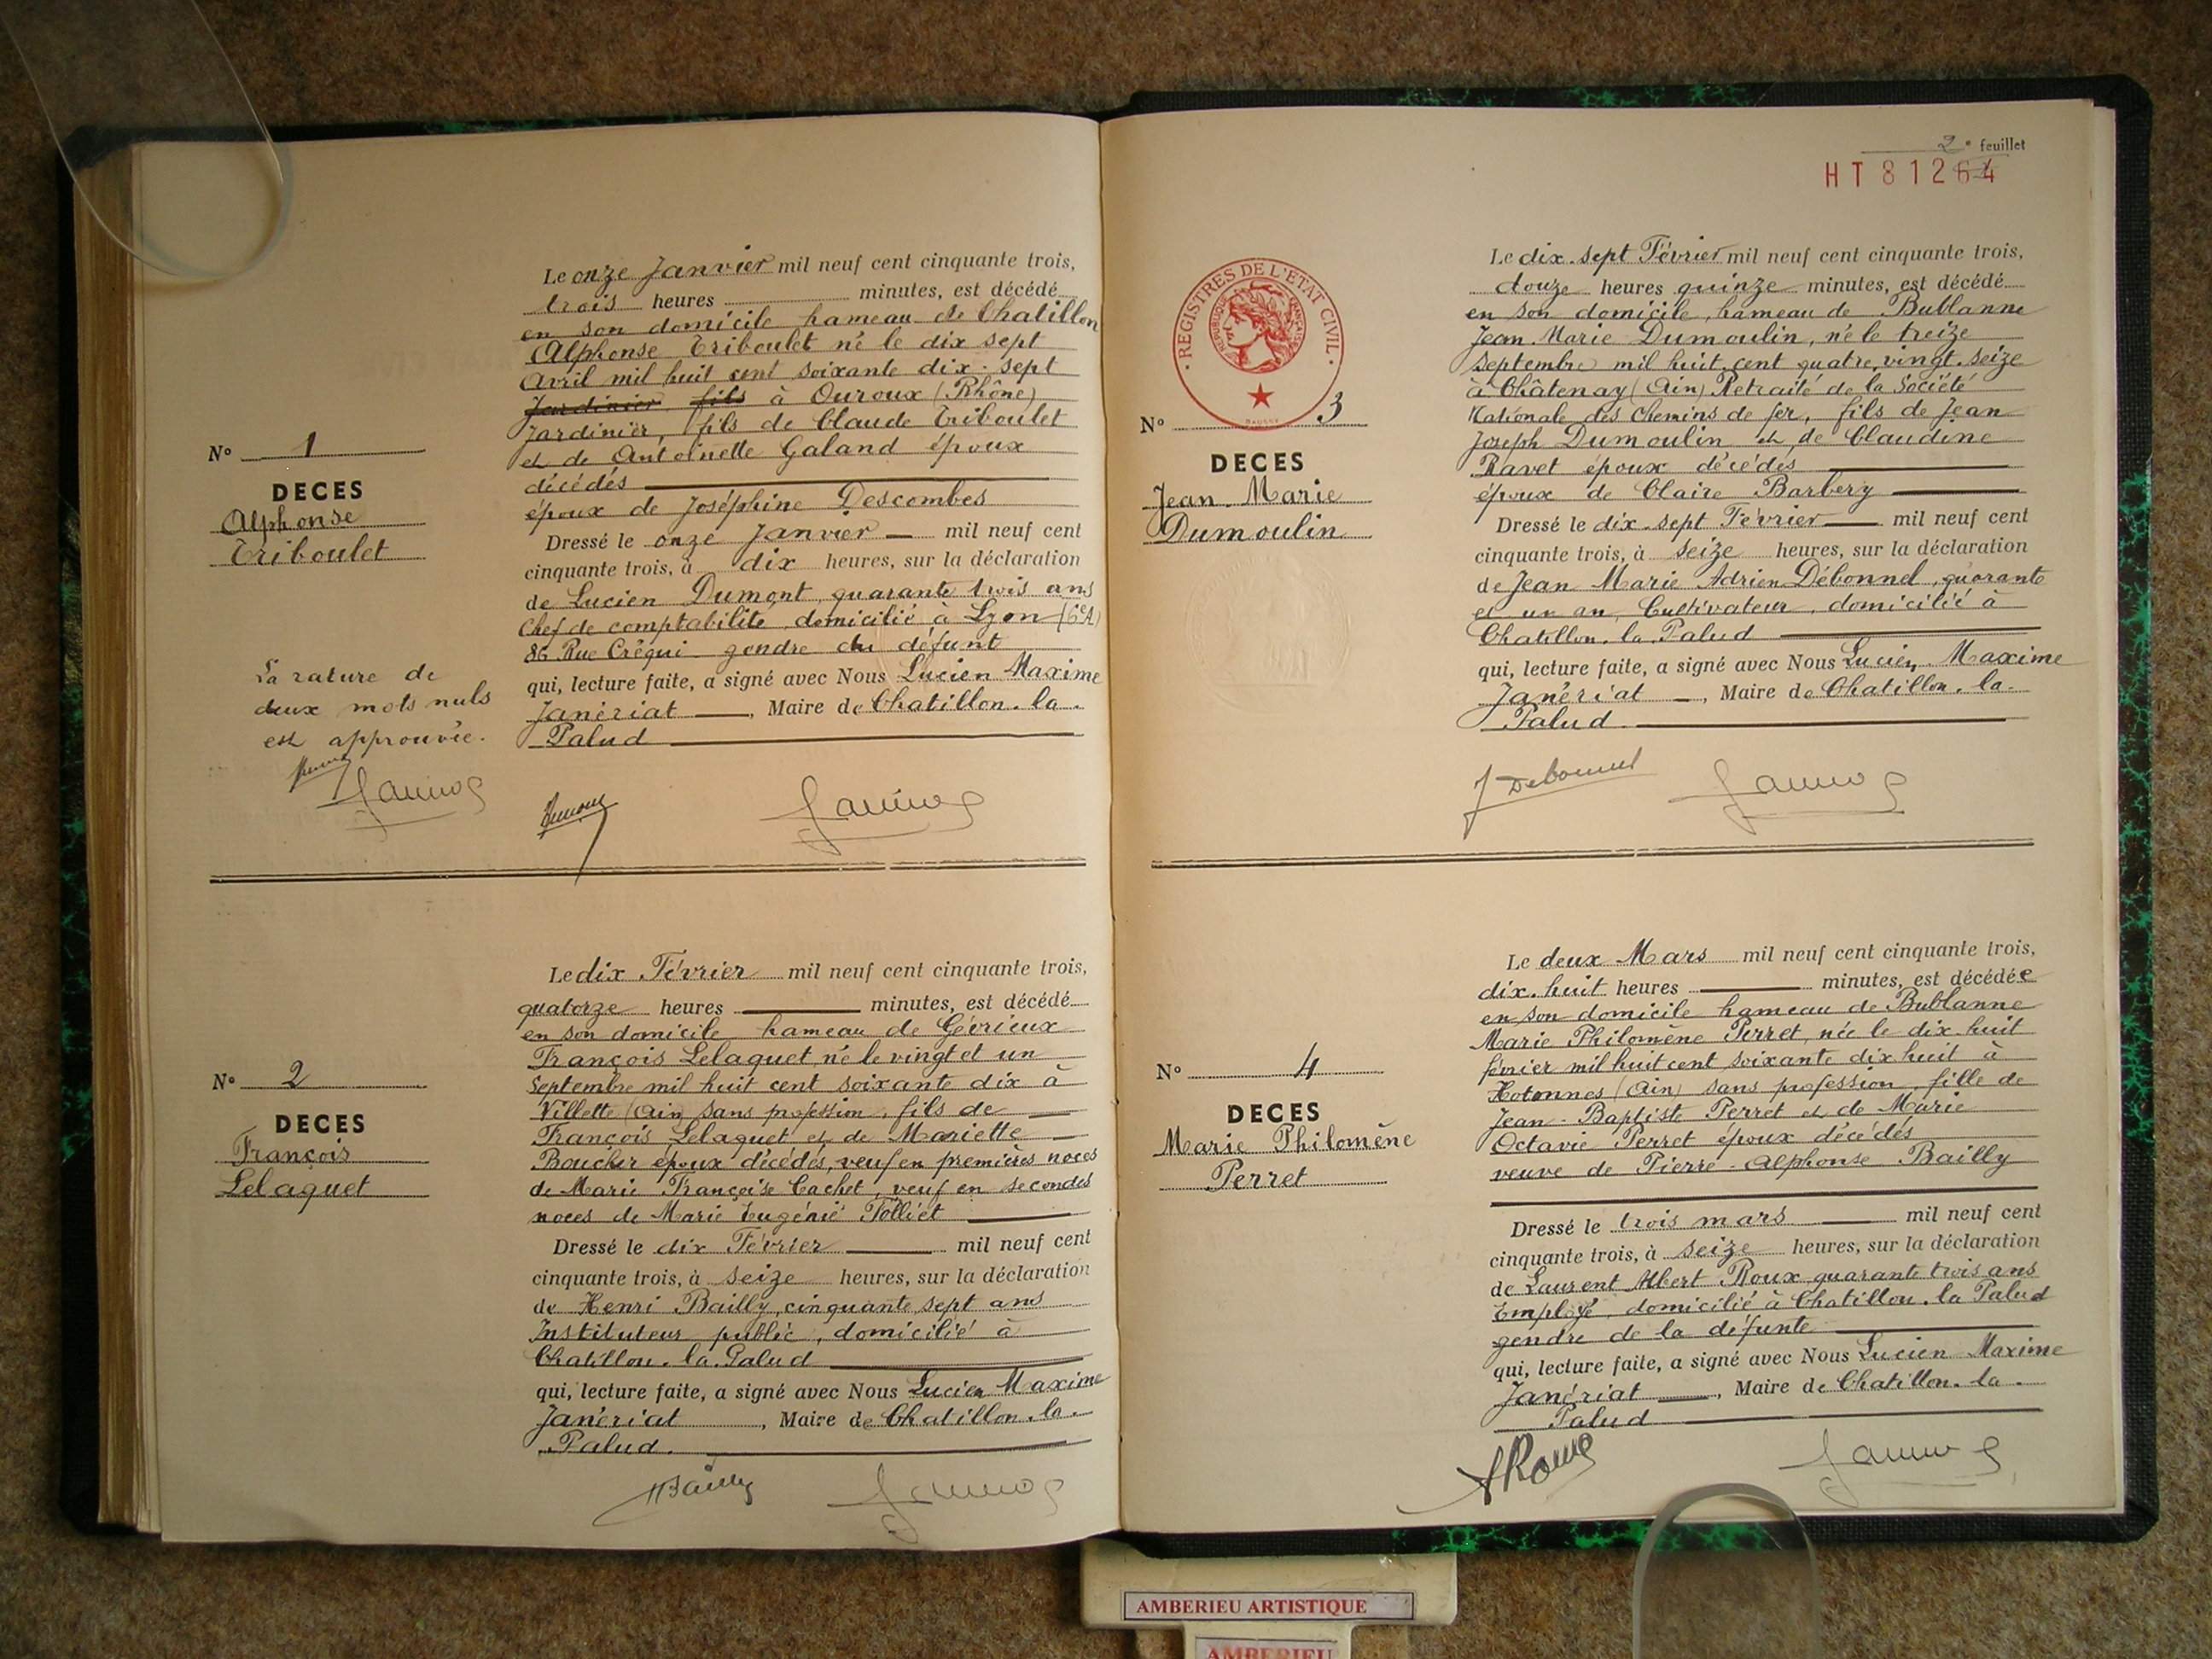 N° 1
DECES
Alphonse
Triboulet
Le onze Janvier mil neuf cent cinquante trois,
trois heures minutes, est décédé
en son domicile hameau de Chatillon
Alphonse Triboulet né le dix sept
Avril mil huit cent soixante dix-sept
Jardinier fils à Ouroux (Rhône)
Jardinier, fils de Claude Triboulet
et de Antoinette Galand époux
décédés
époux de Joséphine Descombes
Dressé le onze Janvier mil neuf cent
cinquante trois, à dix heures, sur la déclaration
de Lucien Dumont, quarante trois ans
Chef de comptabilité, domicilié à Lyon (6eA)
86 Rue Créqui gendre du défunt
qui, lecture faite, a signé avec Nous Lucien Maxime
Janériat, Maire de Chatillon-la-
Palud
La rature de
deux mots nuls
est approuvée.
N° 2
DECES
François
Lelaquet
Le dix Février mil neuf cent cinquante trois,
quatorze heures minutes, est décédé
en son domicile hameau de Gévrieux
François Lelaquet né le vingt et un
Septembre mil huit cent soixante dix à
Villette (Ain) sans profession, fils de
François Lelaquet et de Mariette
Boucher époux décédés, veuf en premières noces
de Marie Françoise Cachet, veuf en secondes
noces de Marie Eugénie Tolliet
Dressé le dix Février mil neuf cent
cinquante trois, à seize heures, sur la déclaration
de Henri Bailly, cinquante sept ans
Instituteur public, domicilié à
Chatillon-la-Palud
qui, lecture faite, a signé avec Nous Lucien Maxime
Janériat, Maire de Chatillon-la-
Palud.
HBailly
2e feuillet
HT 81264
REGISTRES DE L'ETAT CIVIL
REPUBLIQUE FRANÇAISE
N° 3
DECES
Jean Marie
Dumoulin
Le dix-sept Février mil neuf cent cinquante trois,
douze heures quinze minutes, est décédé
en son domicile, hameau de Bublanne
Jean Marie Dumoulin, né le treize
Septembre mil huit cent quatre vingt-seize
à Châtenay (Ain) Retraité de la Société
Nationale des Chemins de fer, fils de Jean
Joseph Dumoulin et de Claudine
Ravet époux décédés
époux de Claire Barbery
Dressé le dix-sept Février mil neuf cent
cinquante trois, à seize heures, sur la déclaration
de Jean Marie Adrien Débonnel, quarante
et un an, Cultivateur, domicilié à
Chatillon-la-Palud
qui, lecture faite, a signé avec Nous Lucien Maxime
Janériat, Maire de Chatillon-la-
Palud
J Debonnel
N° 4
DECES
Marie Philomène
Perret
Le deux Mars mil neuf cent cinquante trois,
dix-huit heures minutes, est décédée
en son domicile hameau de Bublanne
Marie Philomène Perret, née le dix-huit
février mil huit cent soixante dix huit à
Hotonnes (Ain) sans profession, fille de
Jean-Baptiste Perret et de Marie
Octavie Perret époux décédés
veuve de Pierre-Alphonse Bailly
Dressé le trois mars mil neuf cent
cinquante trois, à seize heures, sur la déclaration
de Laurent Albert Roux, quarante trois ans
Employé, domicilié à Chatillon-la Palud
gendre de la défunte
qui, lecture faite, a signé avec Nous Lucien Maxime
Janériat, Maire de Chatillon-la-
Palud
ARoux
AMBERIEU ARTISTIQUE
AMBERIEU